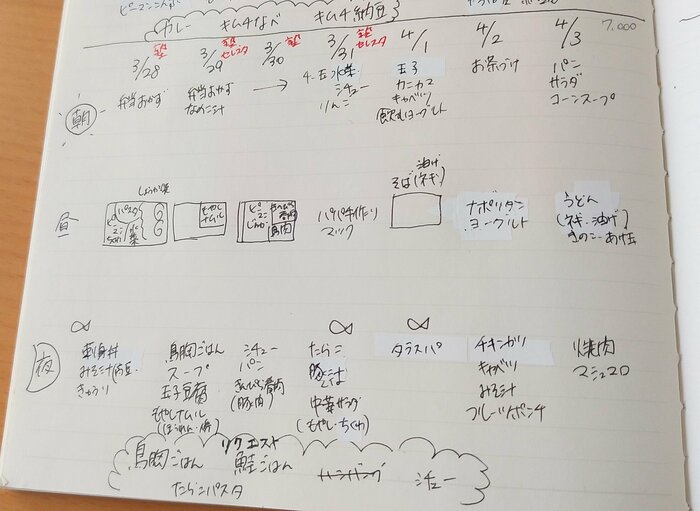 カレー キムチなべ キムチ納豆
7,000
3/28 3/29 セレスタ 3/30 3/31 セレスタ 4/1 4/2 4/3
朝
弁当おかず
弁当おかず
なめこ汁
→
シチュー
りんご
玉子
カニカマ
キャベツ
飲むヨーグルト
お茶づけ
パン
サラダ
コーンスープ
昼
しょうが焼
パスタ
ピーマン
もやし
ナムル
鳥肉
パパ手作り
マック
油げ
そば(ネギ)
ナポリタン
ヨーグルト
うどん
(ネギ・油げ
きのこ・あげ玉
夜
みそ汁
きゅうり
鳥胸ごはん
スープ
玉子豆腐
もやしナムル
シチュー
パン
(豚肉)
たらこ
豚汁
中華サラダ
(もやし・ちくわ)
タラスパ
チキンカツ
キャベツ
みそ汁
フルーツポンチ
焼肉
マシュマロ
リクエスト
鳥胸ごはん 鮭ごはん ハンバーグ シチュー
たらこパスタ